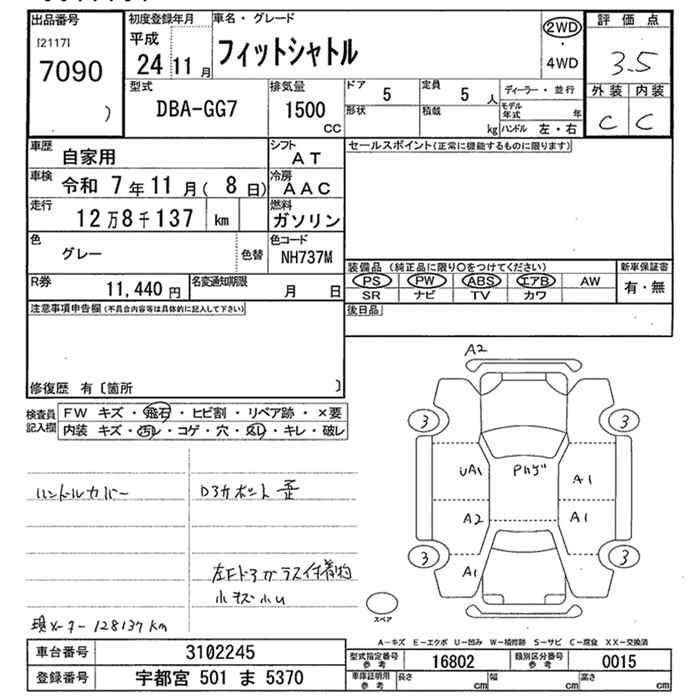 出品番号 初度登録年月 車名・グレード 評価点
[2117] 平成 2WD
7090 24 11月 フィットシャトル ・ 3.5
4WD
) 型式 排気量 ドア 5 定員 5人 ディーラー・並行 外装 内装
DBA-GG7 1500 形状 積載 モデル年式 年 C C
CC kg ハンドル 左・右
車歴 自家用 シフト AT セールスポイント(正常に機能するものに限ります)
車検 令和 7年11月( 8日) 冷房 AAC
走行 12万8千137 km 燃料 ガソリン
色 グレー 色替 色コード NH737M
装備品 (純正品に限り○をつけてください) 新車保証書
PS PW ABS エアB AW 有・無
SR ナビ TV カワ
R券 11,440円 名変通知期限 月 日
後日品
注意事項申告欄(不具合内容等は具体的に記入して下さい)
修復歴 有〔箇所 〕
検査員記入欄 FW キズ・飛石・ヒビ割・リペア跡・×要
内装 キズ・汚レ・コゲ・穴・スレ・キレ・破レ
A2
3 3
UA1 Pハゲ A1
A2 A1
3 3
A1
スペア
ハンドルカバー Dヨカボント歪
左Fドアガラス付着物
小キズ小U
現メーター128137km
A－キズ E－エクボ U－凹み W－補修跡 S－サビ C－腐食 XX－交換済
車台番号 3102245 型式指定番号参考 16802 類別区分番号参考 0015
登録番号 宇都宮 501 ま 5370 車庫証明用参考 長さ cm 幅 cm 高さ cm